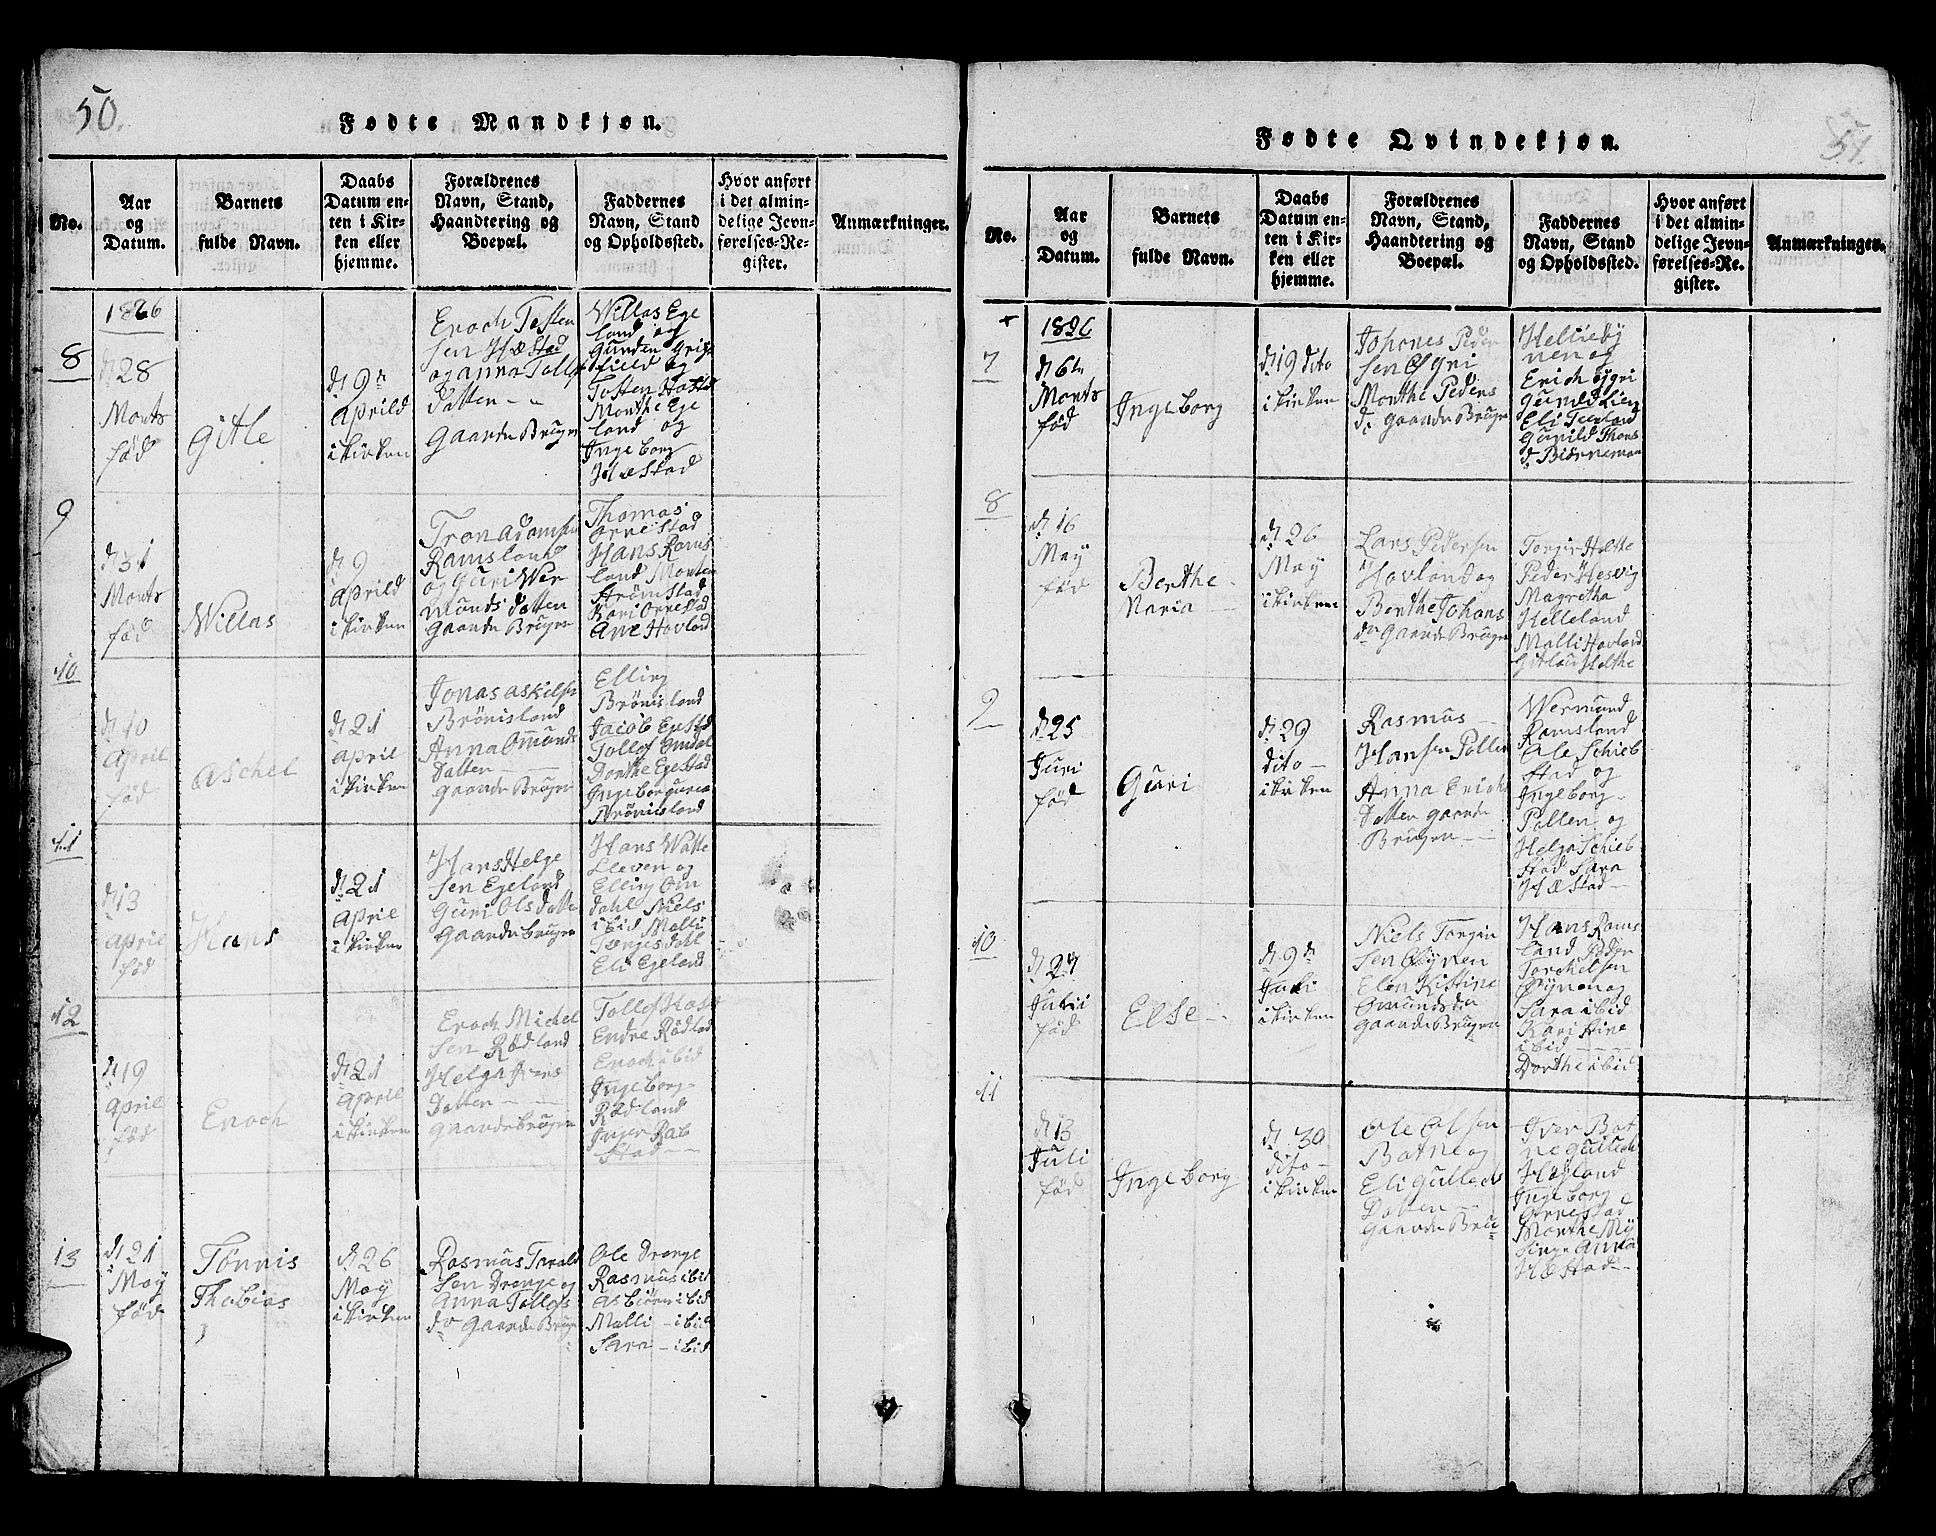 50.
Fødte Mandkjøn.
No.
Aar
og
Datum.
Barnets
fulde Navn.
Daabs
Datum en-
ten i Kir-
ken eller
hjemme.
Forældrenes
Navn, Stand,
Haandtering og
Boepæl.
Faddernes
Navn, Stand
og Opholdssted.
Hvor anført
i det almin-
delige Jevn-
førelses-Re-
gister.
Anmærkninger.
1826
8
d 28
Monts
fød
Gitle
d 9
april d
i kirken
Enoch Tosten
sen Hæstad
og anna Tollof
Datten
Gaarde Bruger
Willas Ege
land og
Gunder
Tosten
Monthe Ege
land og
Ingeborg
Hæstad
9
d 31
Monts
fød
Willas
d 9
april d
i kirken
Tron adamsen
Ramsland
og Guri Wer
munds datten
Gaarde Bruger
Thomas
ornestad
Hans Rams
land Monten
Kari Ornestad
Ane Hovland
10
d 10
april
fød
aschel
d 21
april
i kirken
Jonas askilsen
Brönisland
Anna Omunds
Datten
Gaarde Bruger
Elling
Brönisland
Jacob
Tollof Omdal
Donthe Egestad
Ingeborg
Brönisland
11
d 13
april
fød
Hans
d 21
april
i kirken
Hans Helge
sen Egeland
Guri Olsdatte
Gaarde bruger
Hans Watte
Lleven og
Elling Om
dahl Niels
ibid Malli
Tonges dahl
Eli Egeland
12
d 19
april
fød
Enoch
d 21
april
i kirken
Enoch Michel
sen Rødland
Helga Ivers
Datten
Gaarde bruger
Tollof
Endre Rødland
Enoch ibid
Ingeborg
Rødland
Inger Rab
stad
13
d 21
May
fød
Tönnis
Thobias
d 26
May
i kirken
Rasmus Tarald
sen Drange og
Anna Tollofs
dr Gaarde Bruger
Ole Drange
Rasmus ibid
asbiörn ibid
Malli ibid
Sara ibid
51.
Fødte Qvindekjøn.
No.
Aar
og
Datum.
Barnets
fulde Navn.
Daabs
Datum en-
ten i Kir-
ken eller
hjemme.
Forældrenes
Navn, Stand,
Haandtering og
Boepæl.
Faddernes
Navn, Stand
og Opholdssted.
Hvor anført
i det almin-
delige Jevn-
førelses-Re-
gister.
Anmærkninger.
1826
7
d 6
Monts
fød
Ingeborg
d 19 dito
i kirken
Johanes Peder
sen Øgri
Monthe Pedens
dr gaarde Bruger
nen og
Erich øgri
Gunild Lien
Eli
Gunild Thons
8
d 16
May
fød
Berthe
Maria
d 26
May
i kirken
Lars Pedersen
Hovland og
Berthe Johans
dr Gaarde Bruger
Torgir Helthe
Peder Hesvig
Magretha
Helleland
Malli Hovland
9
d 25
Juri
fød
Guri
d 29
dito
i kirken
Rasmus
Hansen Pollen
Anna Erichs
Datten gaarde
Bruger
Wermund
Ramsland
Ole Schieb
stad og
Ingeborg
Pollen og
Helga Schieb
stad Sara
Hæstad
10
d 27
fød
Else
d 9
Juli
i kirken
Niels Torgir
sen Øynen
Elen Kistine
Omunds dr
gaarde Bruger
Hans Rams
land Peder
Torchelsen
Øynen og
Sara ibid
Kari
ibid
Dorthe ibid
11
d 13
Juli
fød
Ingeborg
d 30
dito
i kirken
Ole Olsen
Botne og
Eli Gulleds
Datten
Gaarde Bru
Iver Bot
ne
Høyland
Ingeborg
Ornestad
Monthe My
singe Anna
Hæstad